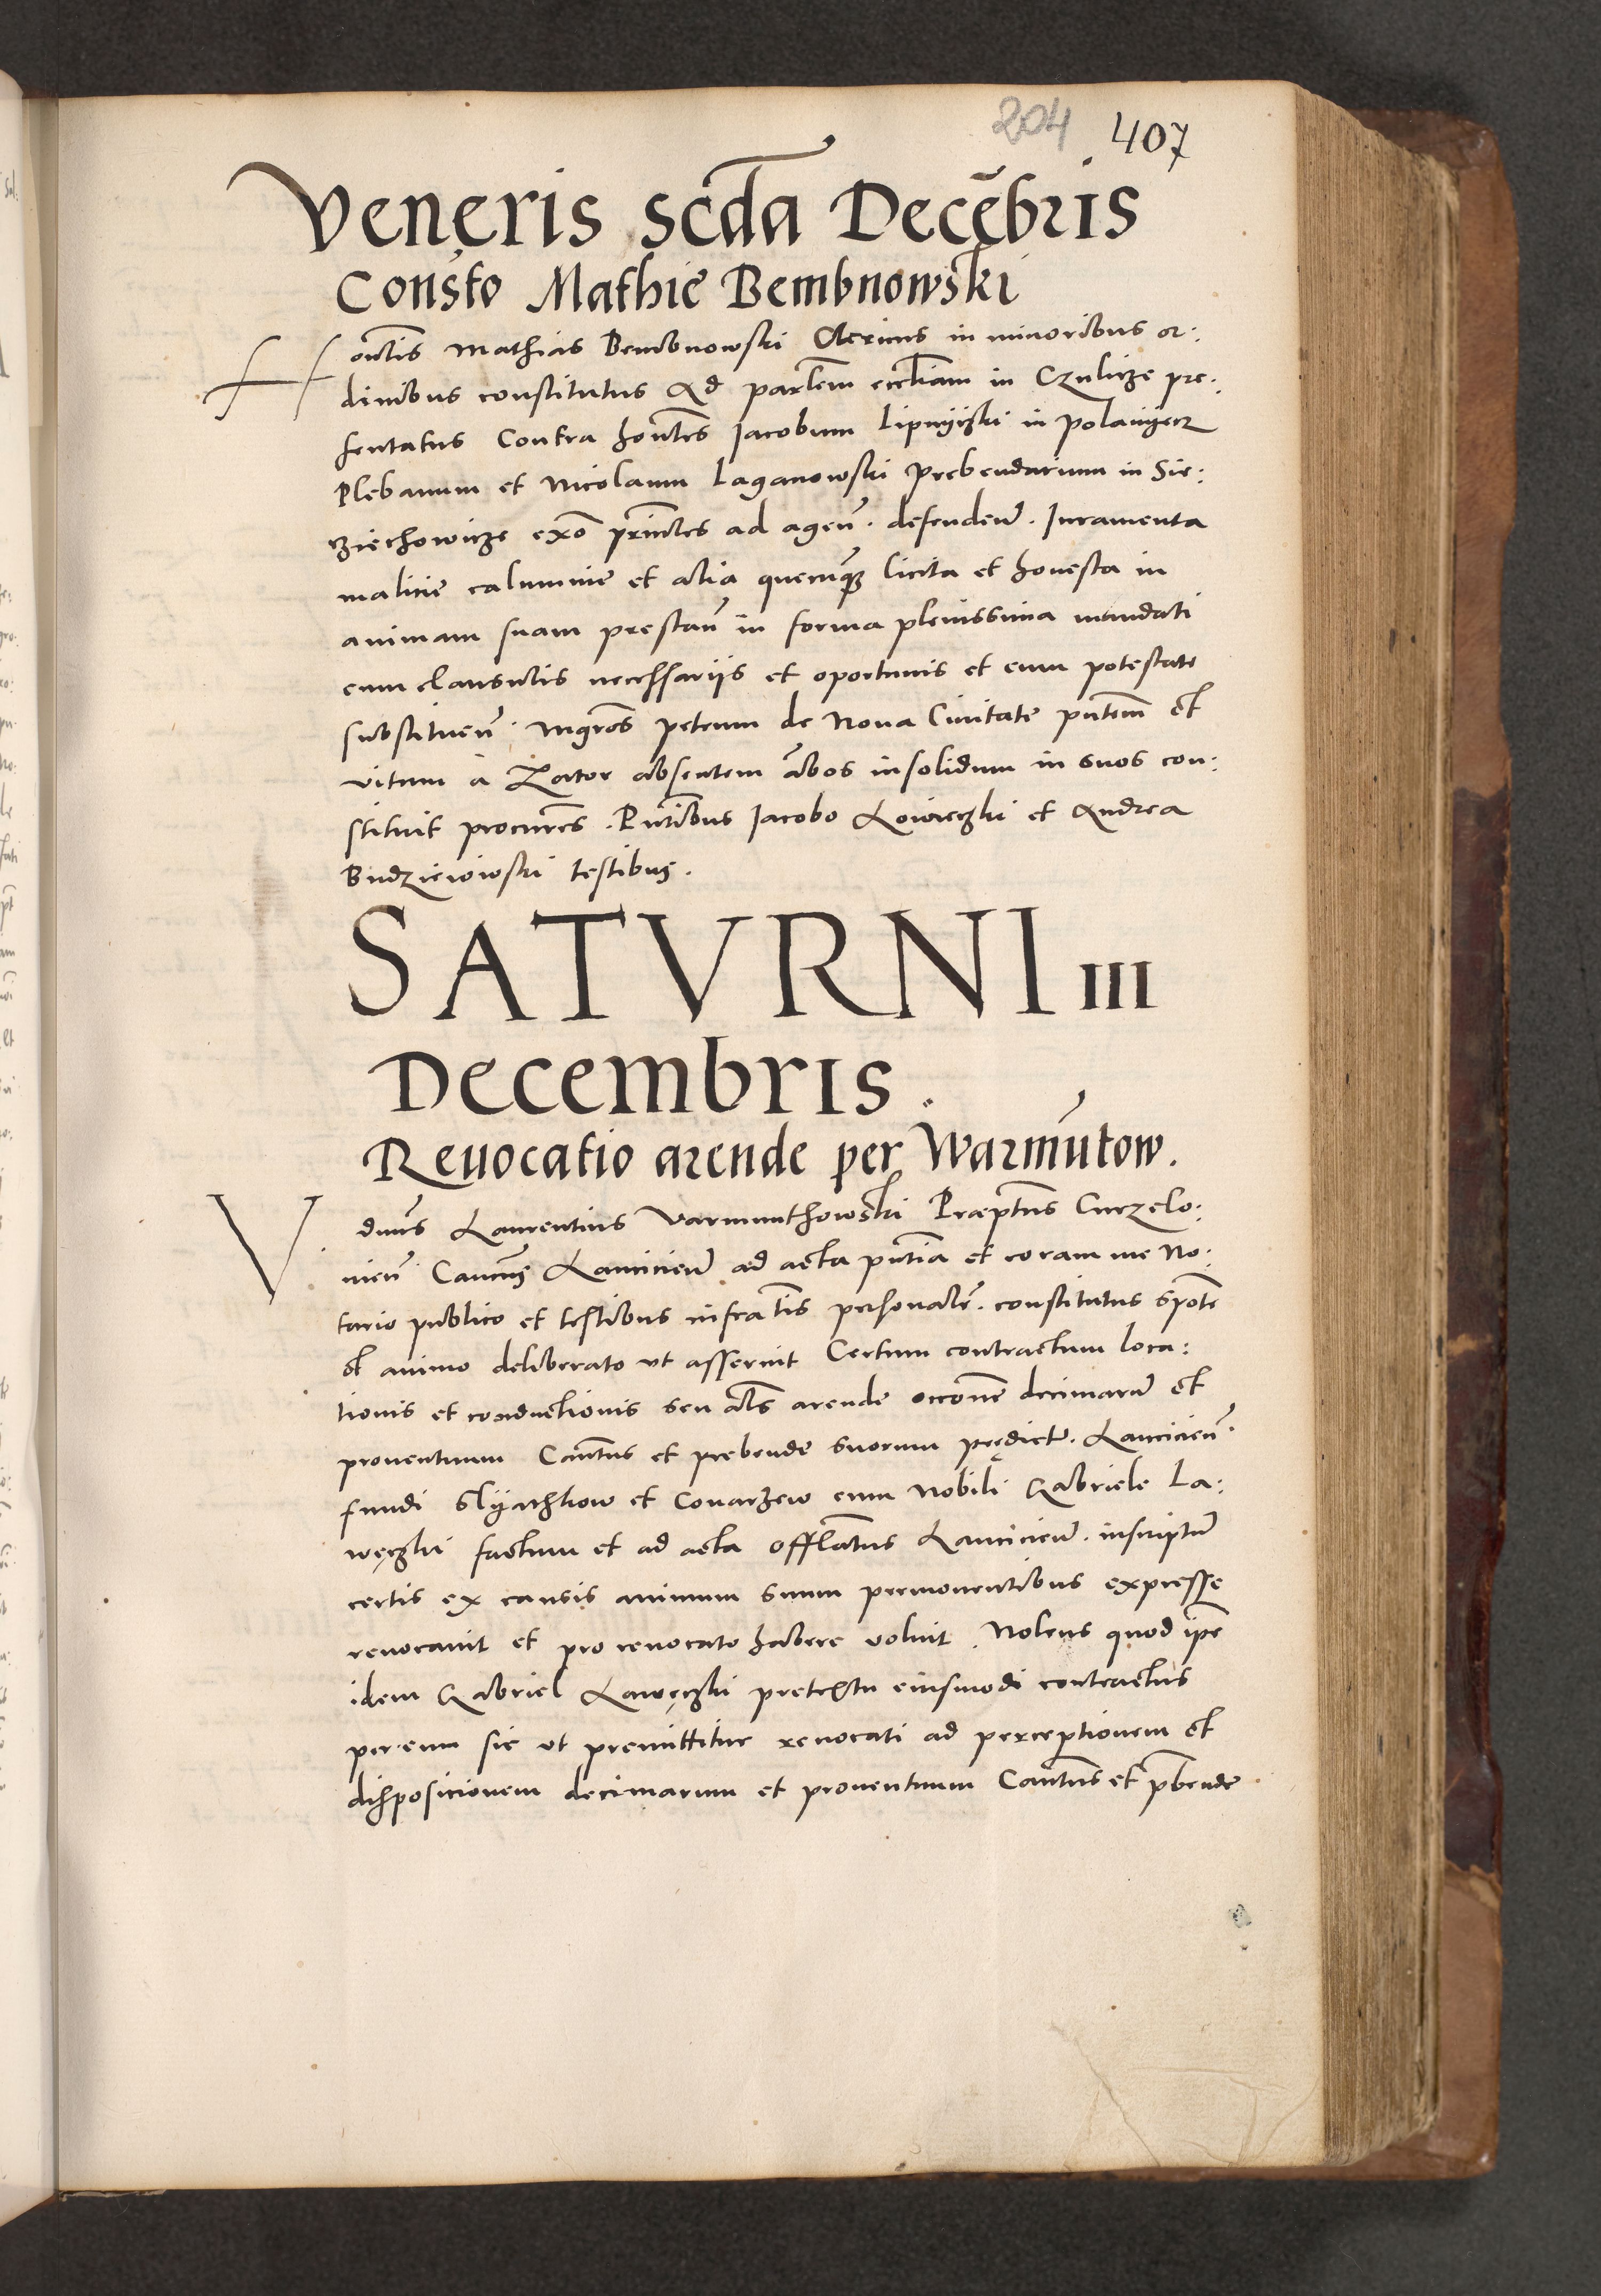 204 407
Veneris scda Decēbris
Consto Mathie Bembnowski
Honestis Mathias Bembnowski Clericus in minoribus or:
dinibus constitutus Ad parlem eccliam in Czulicze pre:
sentatus Contra hontes Jacobum Lipnyczki in Polanyecz
Plebanum et Nicolaum Laganowski Prebendarium in Sie:
cziechowicze exo principles ad ageñ. defendeñ. Juramenta
malicie calumnie et alia quecunque licita et honesta in
animam suam prestañ in forma plenissima mandati
cum clausulis necessariis et oportunis et cum potestate
substitueñ. Mgros Petrum de Nova Civitate pntem et
Vitum a Zator absentem ābos insolidum in suos con:
stituit procures. Pntibus Jacobo Lowieczki et Andrea
Budziewowski testibus.
SATVRNI III
Decembris.
Reuocatio arende per Warmutow.
V. dnus Laurentius Varmunthowski Praeptus Curzelo:
vieñ. Cantus Lancicieñ ad acta pntia et coram me No:
tario publico et testibus infratis personalr. constitutus sponte
et animo deliberato ut asseruit Certum contractum loca:
tionis et conductionis seu als arende occone decimarum et
proventuum Cantus et prebende suorum predict. Lancicieñ.
fundi Slyathkow et Covarzew cum Nobili Gabriele La:
węczki factum et ad acta offlatus Lancicieñ. inscriptum
certis ex causis animum suum premoventibus expresse
revocavit et pro revocato habere voluit. Nolens quod ipe
idem Gabriel Lawęczki pretextu eiusmodi contractus
per eum sic ut premittitur revocati ad perceptionem et
disposicionem decimarum et proventuum Cantus et pbende